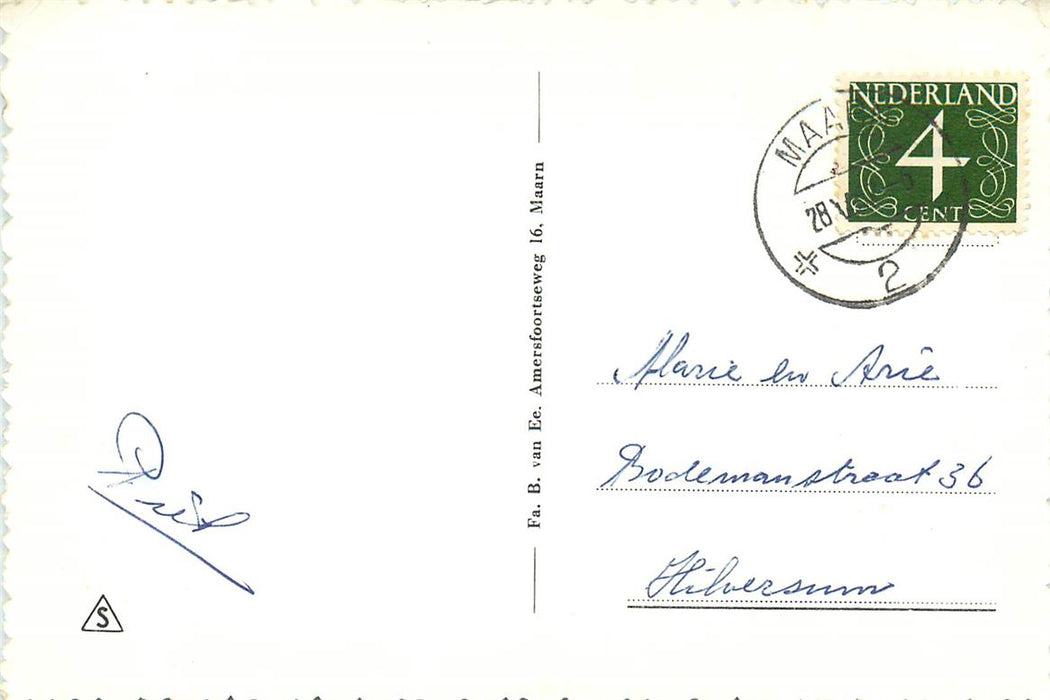 NEDERLAND
4
CENT
28
2
Fa. B. van Ee. Amersfoortseweg 16, Maarn
Marie en Arie
Bodemanstraat 36
Hilversum
S